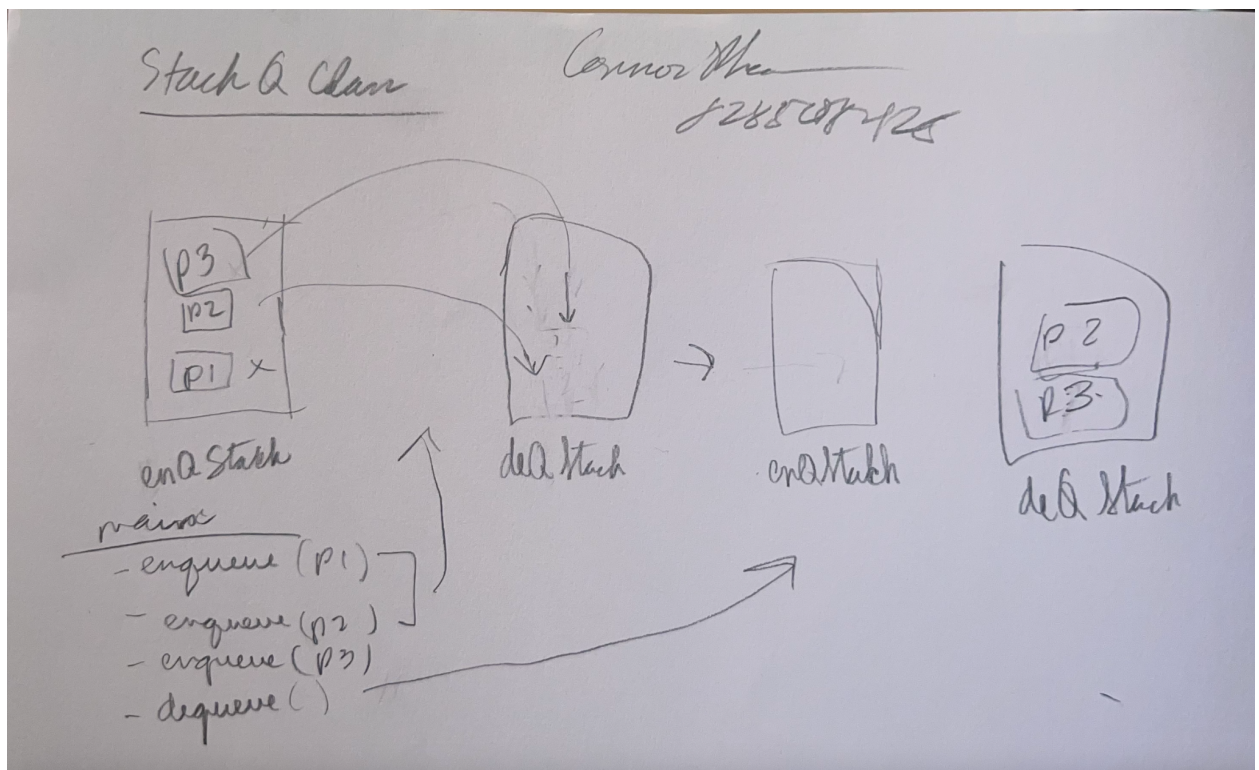 Stack Q Class
Connor
p3
p2
p1 x
enQ Stack
deQ Stack
enQ Stack
p2
p3
deQ Stack
main
- enqueue (p1)
- enqueue (p2)
- enqueue (p3)
- dequeue ( )